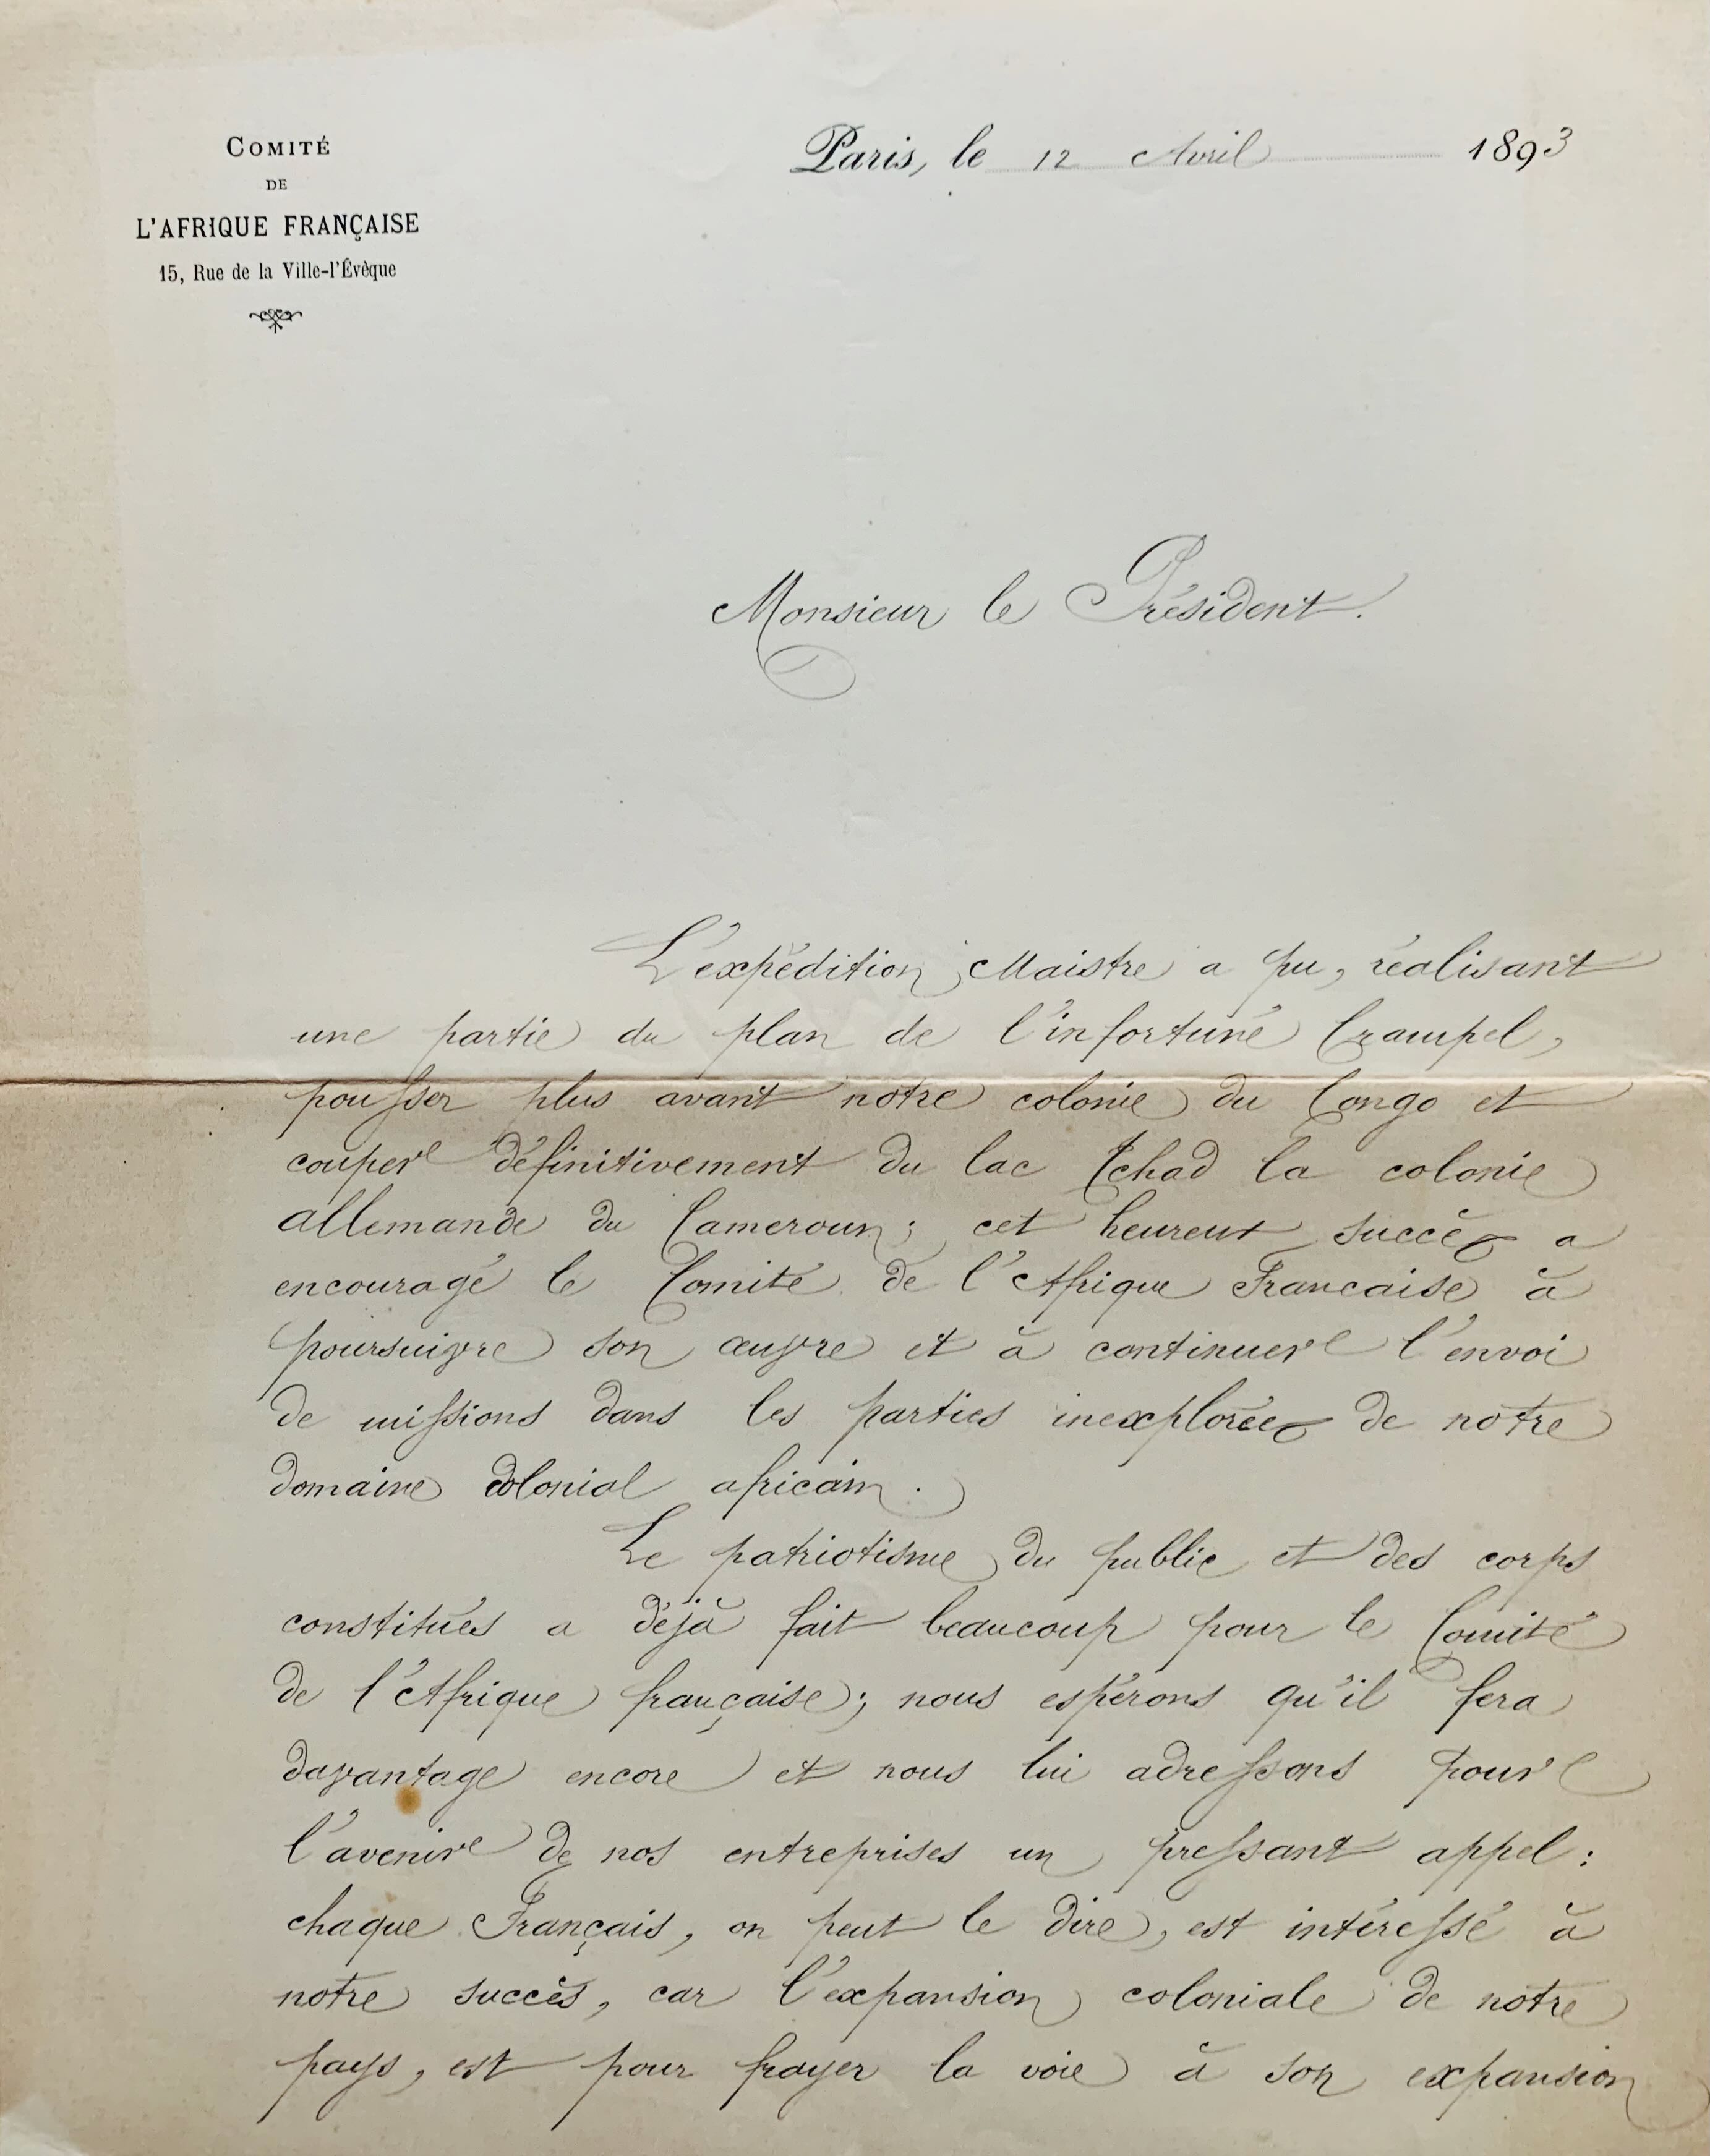 COMITÉ
DE
L'AFRIQUE FRANÇAISE
15, Rue de la Ville-l'Évêque
Paris, le 12 Avril 1893
Monsieur le Président.
L'expédition Maistre a pu, réalisant
une partie du plan de l'infortuné Crampel,
pousser plus avant notre colonie du Congo et
couper définitivement du lac Tchad la colonie
allemande du Cameroun ; cet heureux succès a
encouragé le Comité de l'Afrique Francaise à
poursuivre son œuvre et à continuer l'envoi
de missions dans les parties inexplorées de notre
domaine colonial africain.
Le patriotisme du public et des corps
constitués a déjà fait beaucoup pour le Comité
de l'Afrique française ; nous espérons qu'il fera
davantage encore et nous lui adressons pour
l'avenir de nos entreprises un pressant appel :
chaque Français, on peut le dire, est intéressé à
notre succès, car l'expansion coloniale de notre
pays, est pour frayer la voie à son expansion